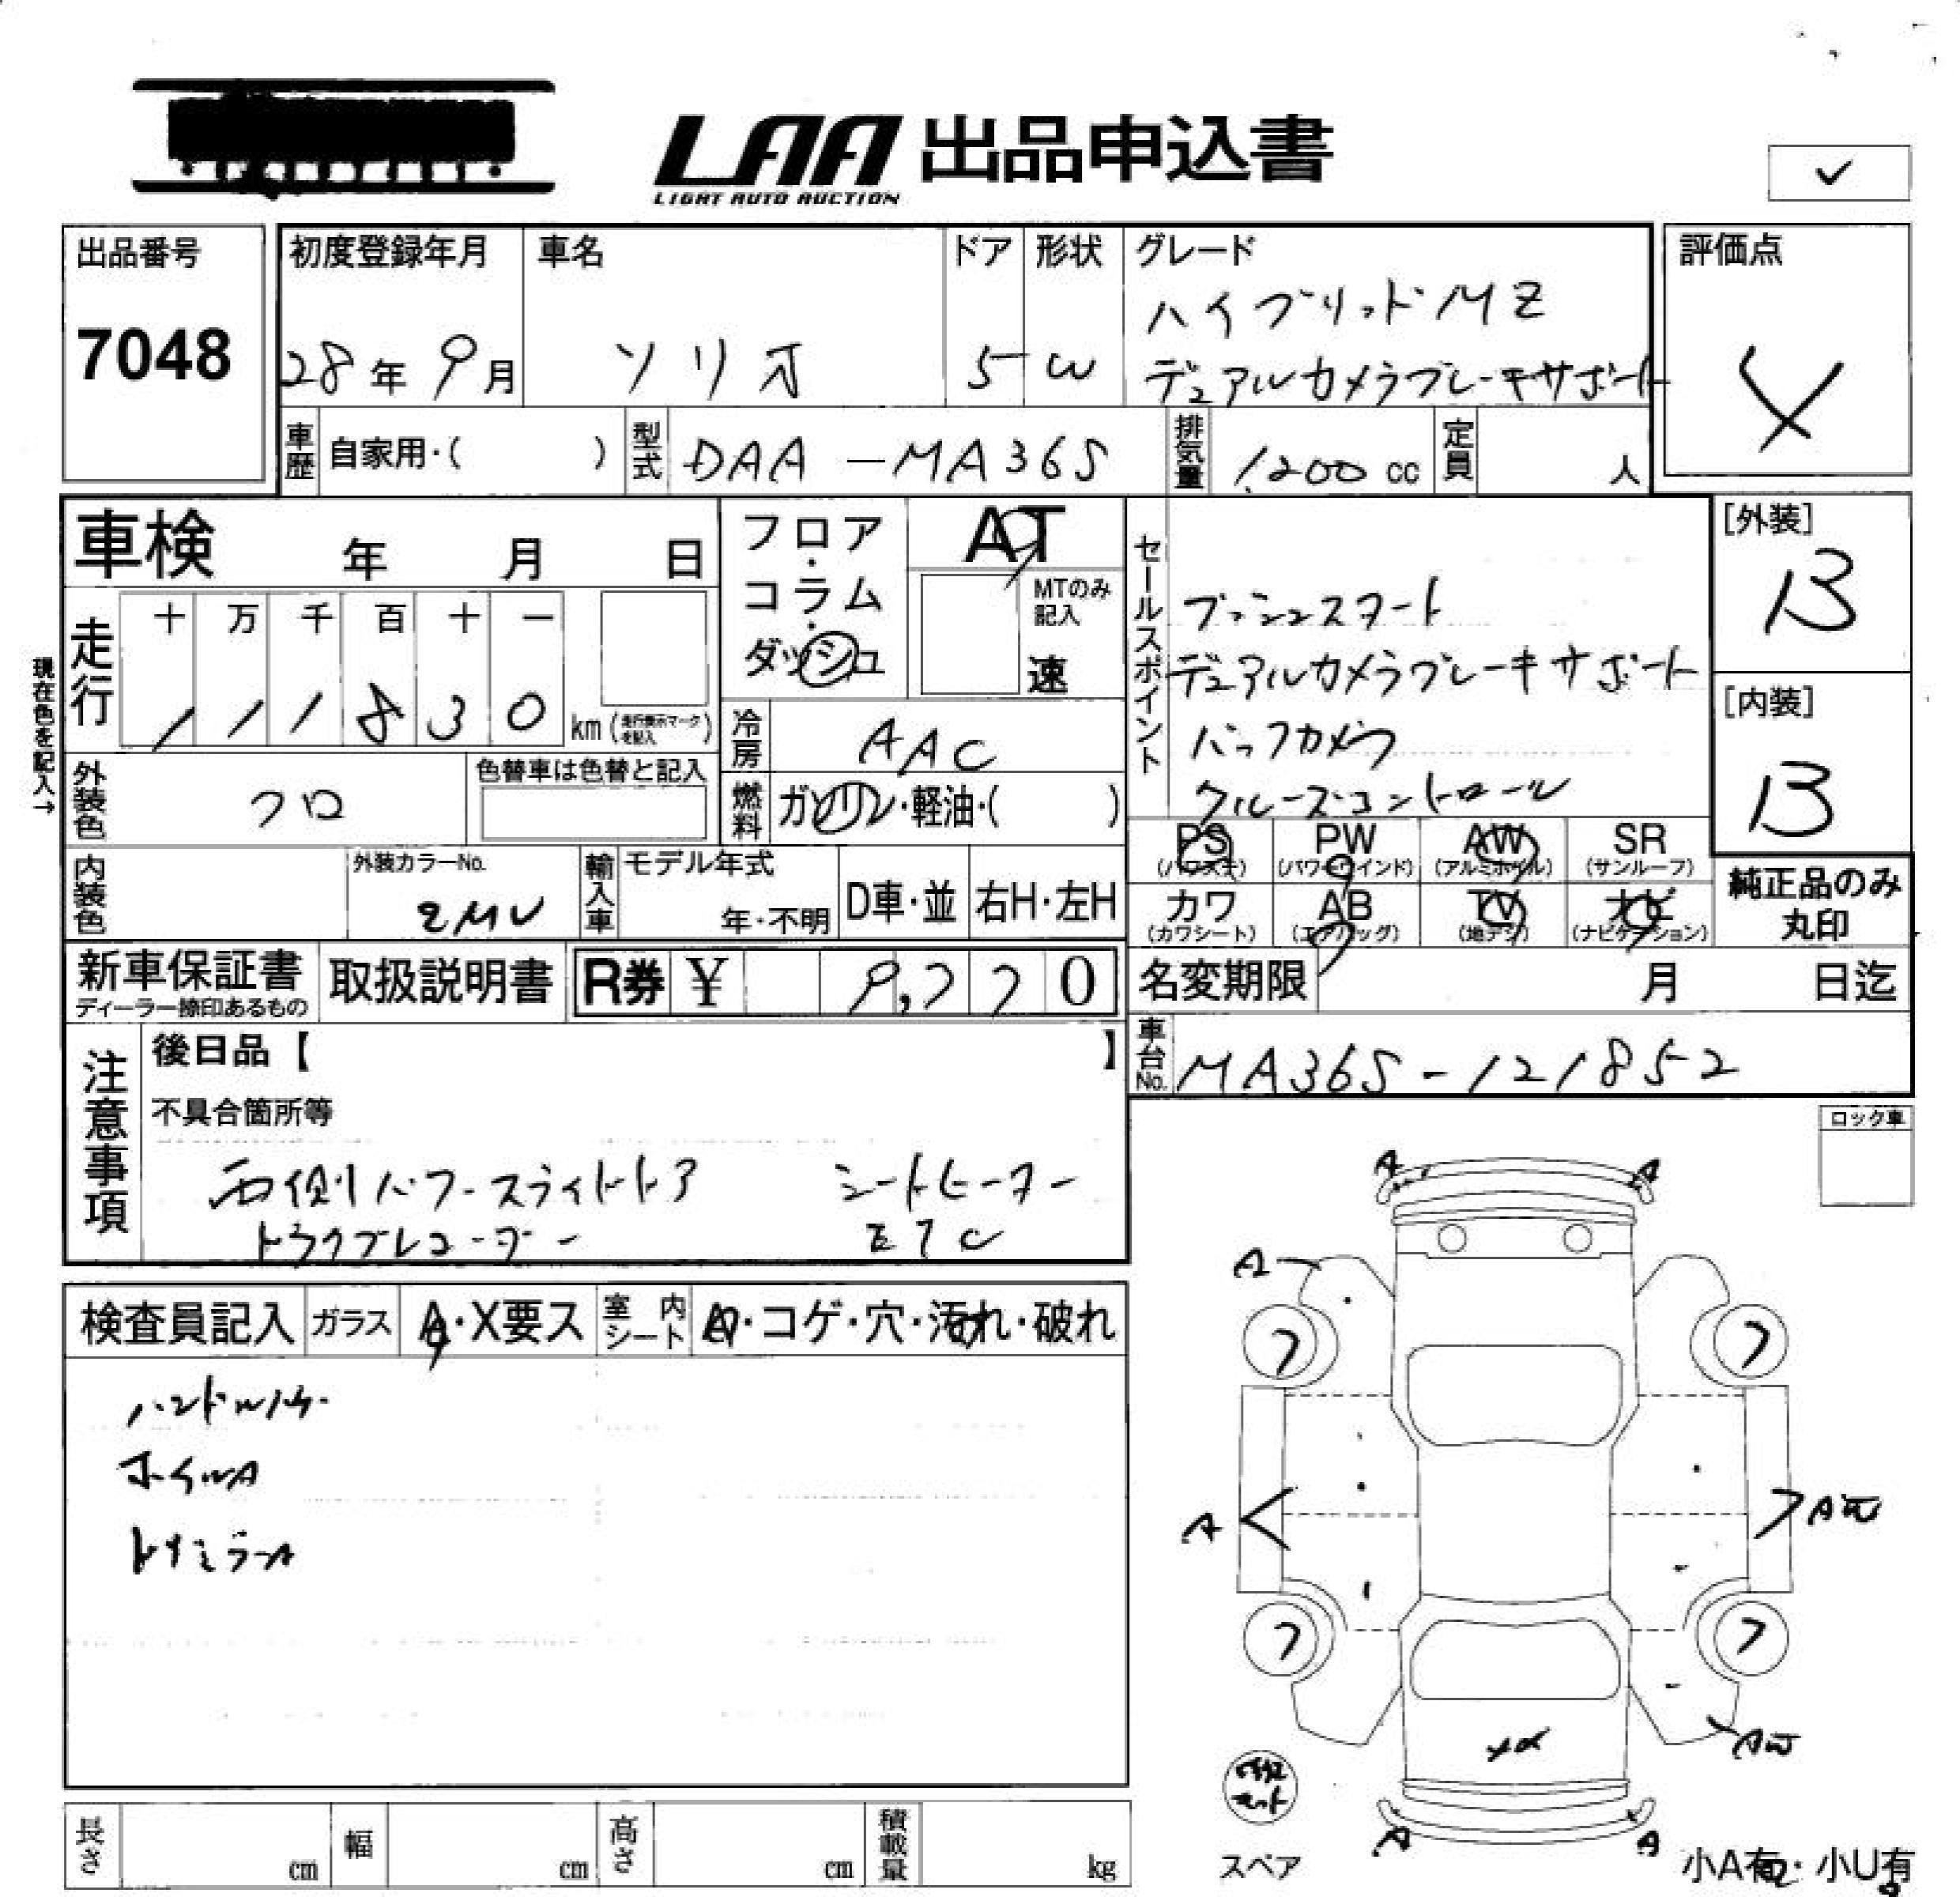 LAA 出品申込書
LIGHT AUTO AUCTION
✓
出品番号
7048
初度登録年月
28年9月
車名
ソリオ
ドア
5
形状
W
グレード
ハイブリッドMZ
デュアルカメラブレーキサポート
評価点
4
車歴 自家用・( )
型式 DAA-MA36S
排気量 1,200cc
定員 人
車検 年 月 日
フロア・コラム・ダッシュ
AT
MTのみ記入
速
セールスポイント
プッシュスタート
デュアルカメラブレーキサポート
バックカメラ
クルーズコントロール
[外装]
B
[内装]
B
現在色を記入→
走行
十 万 千 百 十 一
1 1 1 8 3 0
km(走行表示マークを記入)
冷房 AAC
外装色 クロ
色替車は色替と記入
燃料 ガソリン・軽油・( )
PS (パワステ)
PW (パワーウインド)
AW (アルミホイル)
SR (サンルーフ)
カワ (カワシート)
AB (エアバッグ)
TV (地デジ)
ナビ (ナビゲーション)
純正品のみ丸印
内装色
外装カラーNo.
ZMV
輸入車
モデル年式
年・不明
D車・並
右H・左H
新車保証書
ディーラー捺印あるもの
取扱説明書
R券 ¥ 9,770
名変期限 月 日迄
車台No. MA36S-121852
注意事項
後日品【 】
不具合箇所等
両側パワースライドドア シートヒーター
ドラクブレコーダー ETC
ロック車
検査員記入
ガラス A・X要ス
室内シート A・コゲ・穴・汚れ・破れ
ホイルA
ドアミラーA
A
A
A
フ
フ
A
A
フ
フ
A
A
A
スペア
小A有・小U有
長さ cm
幅 cm
高さ cm
積載量 kg